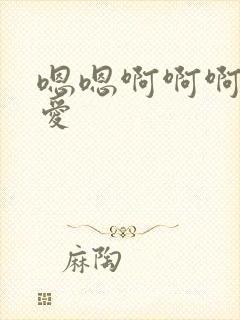 嗯嗯啊啊啊
爱
麻陶